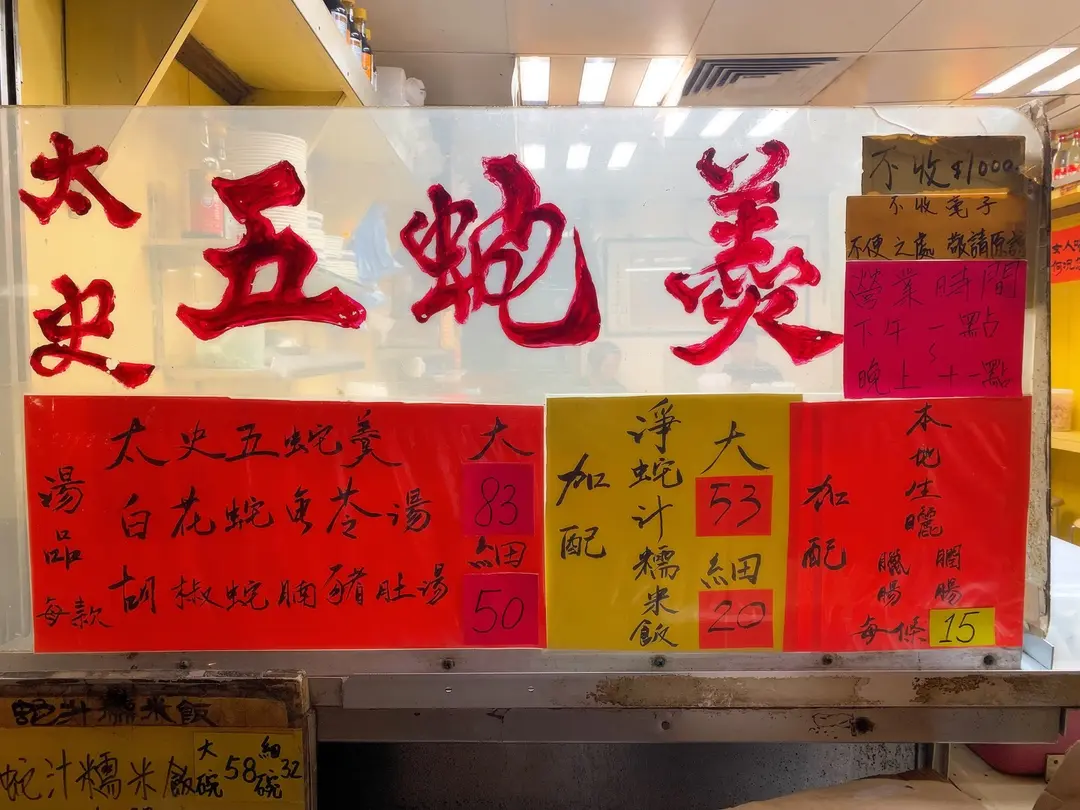 太史
五蛇羹
不收$1000
不收電子
不便之處 敬請原諒
營業時間
下午一點
~
晚上十一點
湯品 每款
太史五蛇羹
白花蛇魚苓湯
胡椒蛇腩豬肚湯
大
83
細
50
加配
淨蛇汁糯米飯
大
53
細
20
加配
本地生曬
臘腸
膶腸
每條 15
蛇汁糯米飯
蛇汁糯米飯
大碗 58
細碗 32